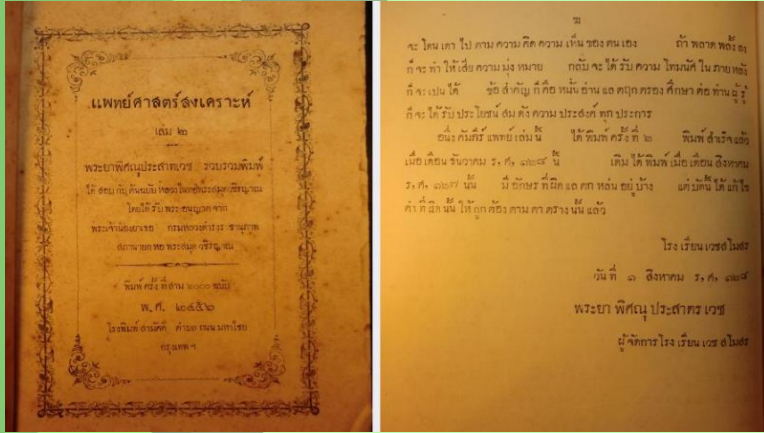 แพทย์ศาสตร์สงเคราะห์
เล่ม ๒
พระยาพิศณุประสาทเวช รวบรวมพิมพ์
ได้ สอบ กับ ต้นฉบับ หลวง ในหอพระสมุดวชิรญาณ
โดยได้ รับ พระ อนุญาต จาก
พระเจ้าน้องยาเธอ กรมหลวงดำรง ราชานุภาพ
สภานายก หอ พระสมุด วชิรญาณ
พิมพ์ ครั้ง ที่ สาม ๒๐๐๐ ฉบับ
พ, ศ, ๒๔๕๒
โรงพิมพ์ สามัคคี ถนน มหาไชย
กรุงเทพ ฯ
ฃ
จะ โดน เดา ไป ตาม ความ คิด ความ เห็น ของ ตน เอง ถ้า พลาด พลั้ง ลง
ก็ จะ ทำ ให้ เสีย ความ มุ่ง หมาย กลับ จะ ได้ รับ ความ โทมนัศ ใน ภาย หลัง
ก็ จะ เปน ได้ ข้อ สำคัญ ก็ คือ หมั่น อ่าน แล ตฤก ตรอง ศึกษา ต่อ ท่าน ผู้ รู้
ก็ จะ ได้ รับ ประโยชน์ สม ดัง ความ ประสงค์ ทุก ประการ
อนึ่ง คัมภีร์ แพทย์ เล่ม นี้ ได้ พิมพ์ ครั้ง ที่ ๒ พิมพ์ สำเร็จ แล้ว
เมื่อ เดือน ธันวาคม ร, ศ, ๑๒๘ นี้ เดิม ได้ พิมพ์ เมื่อ เดือน สิงหาคม
ร, ศ, ๑๒๗ นั้น มี อักษร ที่ ผิด แล ตก หล่น อยู่ บ้าง แต่ บัดนี้ ได้ แก้ ไข
คำ ที่ ผิด นั้น ให้ ถูก ต้อง ตาม ตา ตราง นั้น แล้ว
โรง เรียน เวช สโมสร
วัน ที่ ๑ สิงหาคม ร, ศ, ๑๒๘
พระยา พิศณุ ประสาตร เวช
ผู้ จัดการ โรง เรียน เวช สโมสร